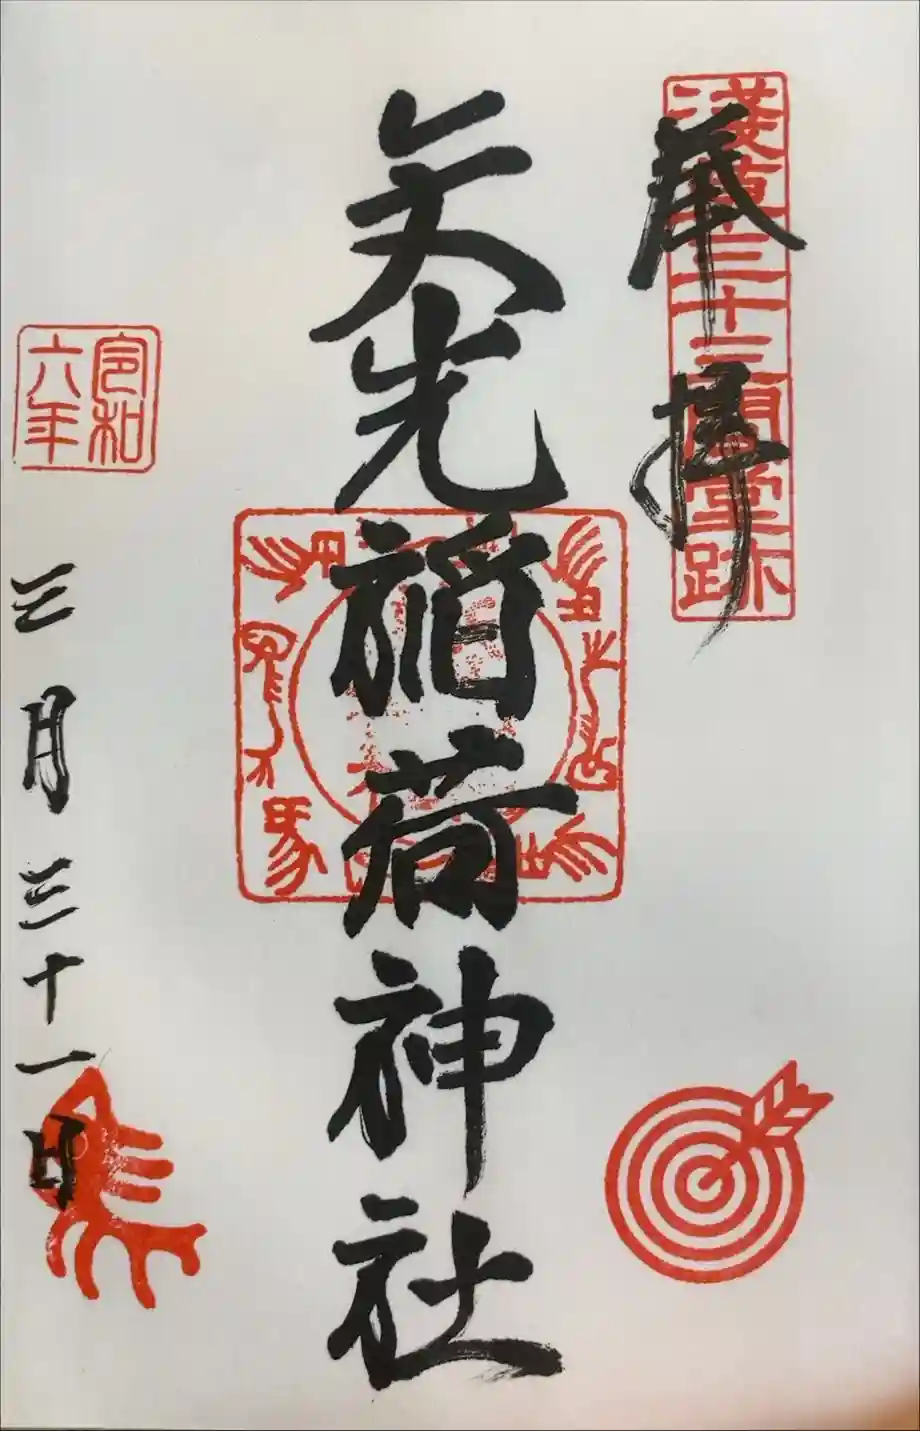 淺草三十三間堂跡
奉拝
矢先稲荷神社
令和
六年
三月三十一日